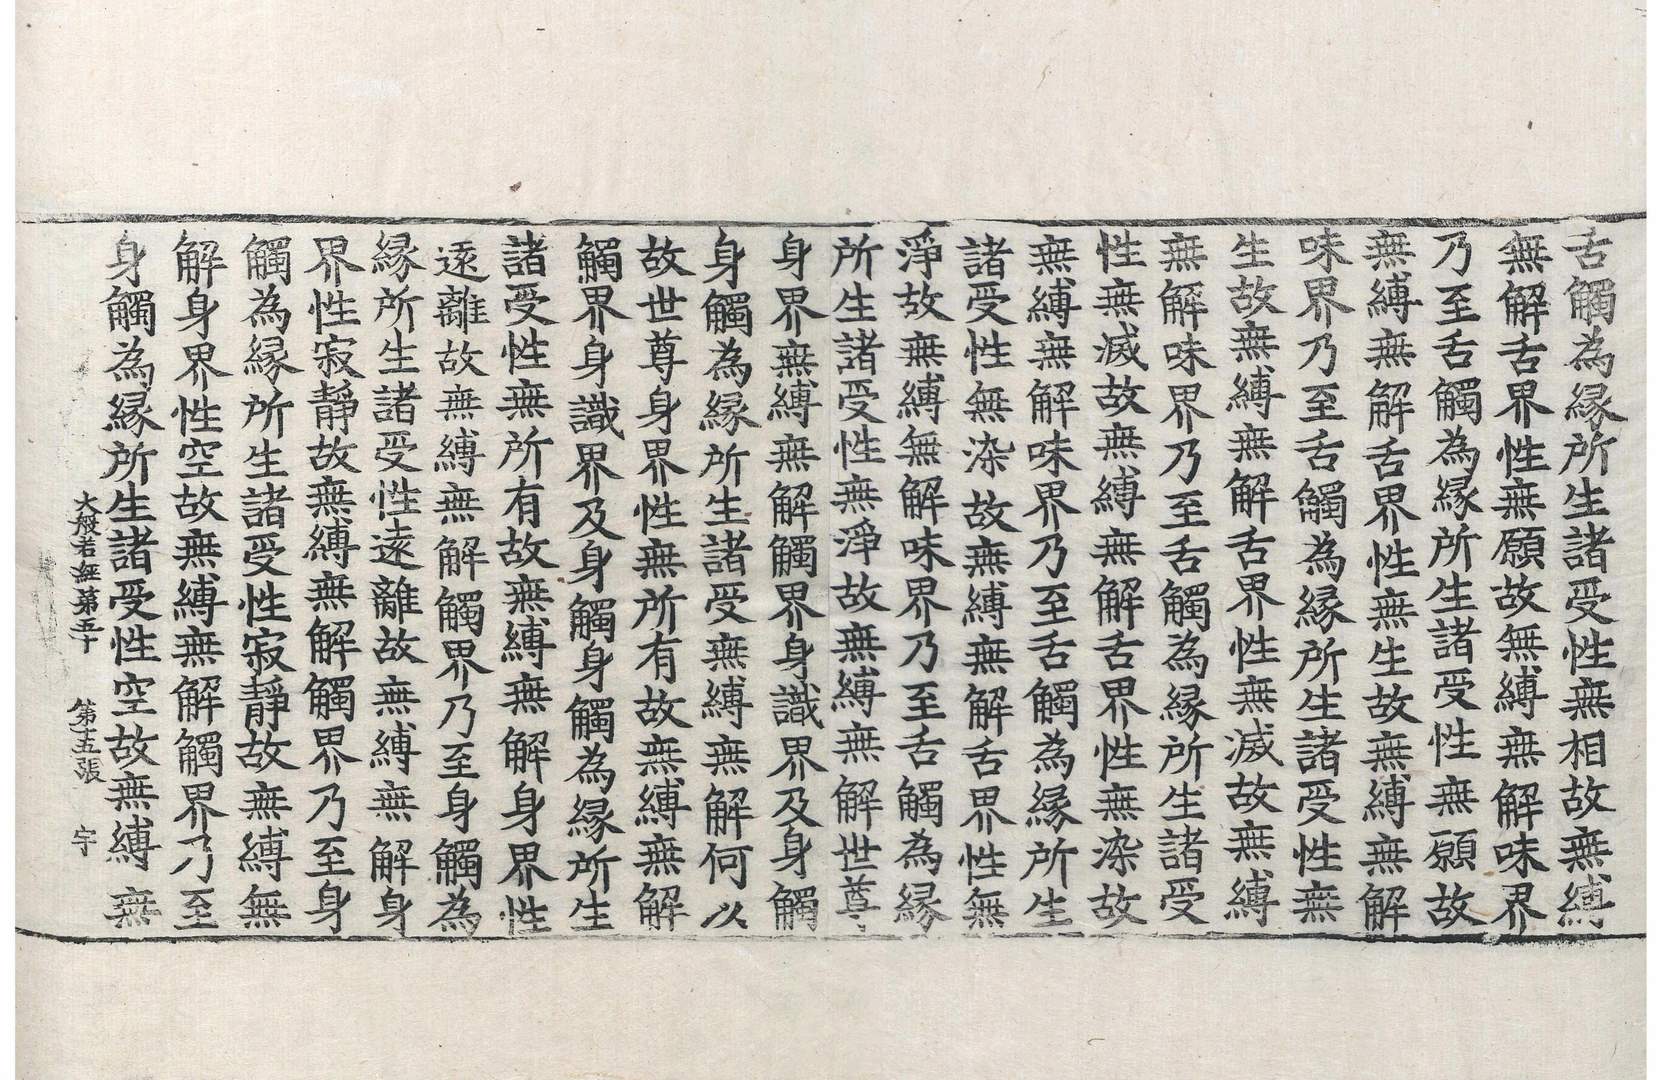 舌觸為縁所生諸受性無相故無縛
無解舌界性無願故無縛無解味界
乃至舌觸為縁所生諸受性無願故
無縛無解舌界性無生故無縛無解
味界乃至舌觸為縁所生諸受性無
生故無縛無解舌界性無滅故無縛
無解味界乃至舌觸為縁所生諸受
性無滅故無縛無解舌界性無染故
無縛無解味界乃至舌觸為縁所生
諸受性無染故無縛無解舌界性無
淨故無縛無解味界乃至舌觸為縁
所生諸受性無淨故無縛無解世尊
身界無縛無解觸界身識界及身觸
身觸為縁所生諸受無縛無解何以
故世尊身界性無所有故無縛無解
觸界身識界及身觸身觸為縁所生
諸受性無所有故無縛無解身界性
遠離故無縛無解觸界乃至身觸為
縁所生諸受性遠離故無縛無解身
界性寂靜故無縛無解觸界乃至身
觸為縁所生諸受性寂靜故無縛無
解身界性空故無縛無解觸界乃至
身觸為縁所生諸受性空故無縛無
大般若經第五十 第十五張 宇